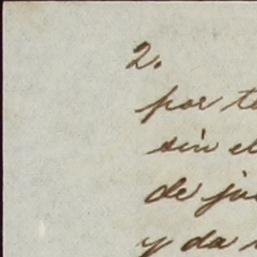 2.
por t
sin el
de ja
y da